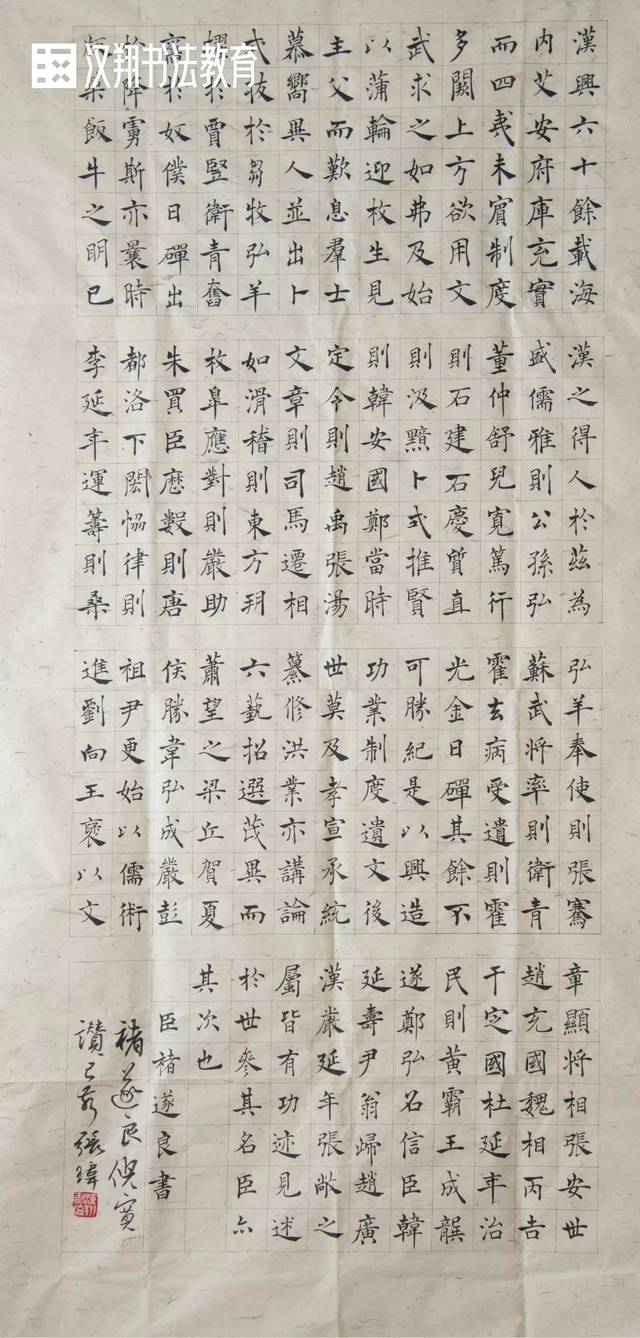 汉翔书法教育
漢興六十餘載海
内艾安府庫充實
而四夷未賓制度
多闕上方欲用文
武求之如弗及始
以蒲輪迎枚生見
主父而歎息羣士
慕嚮異人並出卜
式拔於芻牧弘羊
擢於賈竪衛青奮
於奴僕日磾出
於降虜斯亦曩時
版築飯牛之明已
漢之得人於茲為
盛儒雅則公孫弘
董仲舒兒寬篤行
則石建石慶質直
則汲黯卜式推賢
則韓安國鄭當時
定令則趙禹張湯
文章則司馬遷相
如滑稽則東方朔
枚皋應對則嚴助
朱買臣歷數則唐
都洛下閎恊律則
李延年運籌則桑
弘羊奉使則張騫
蘇武將率則衛青
霍去病受遺則霍
光金日磾其餘不
可勝紀是以興造
功業制度遺文後
世莫及孝宣承統
纂修洪業亦講論
六藝招選茂異而
蕭望之梁丘賀夏
侯勝韋弘成嚴彭
祖尹更始以儒術
進劉向王褒以文
章顯將相張安世
趙充國魏相丙吉
于定國杜延年治
民則黃霸王成龔
遂鄭弘召信臣韓
延壽尹翁歸趙廣
漢嚴延年張敞之
屬皆有功迹見述
於世參其名臣亦
其次也
臣褚遂良書
褚遂良倪寬
讚己亥張瑋